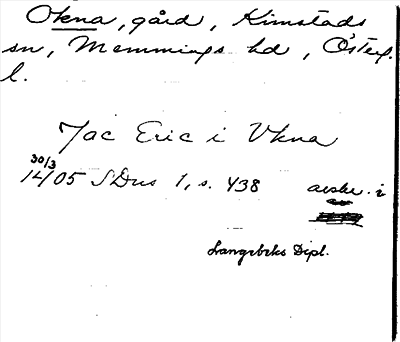 Okna, gård, Kimstads
sn, Memmings hd, Österg.
l.
Jac Eric i Vkna
30/3
1405 SDns 1, s. 438 avskr. i
Langebeks Dipl.